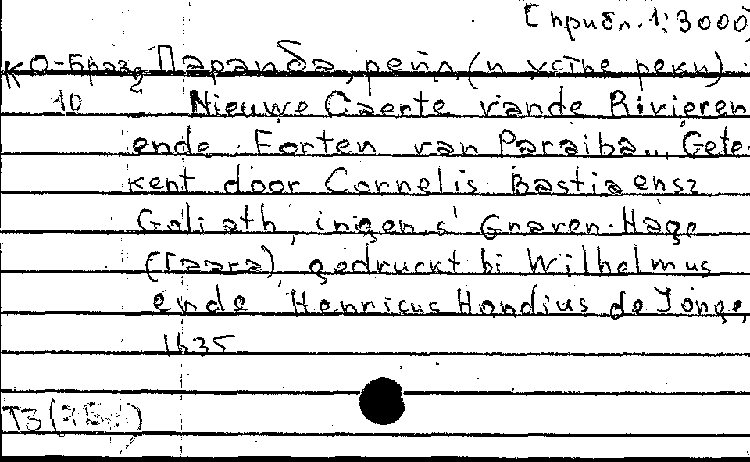 [прибл. 1:3000]
КО-Браз Параиба, рейд (и устье реки).
10 Nieuwe Caerte vande Rivieren
ende Forten van Paraiba... Gete-
kent door Cornelis Bastiaensz
Goliath, ingen s' Graven-Hage
(Гаага), gedruckt bi Wilhelmus
ende Henricus Hondius de Jonge,
1635
ТЗ